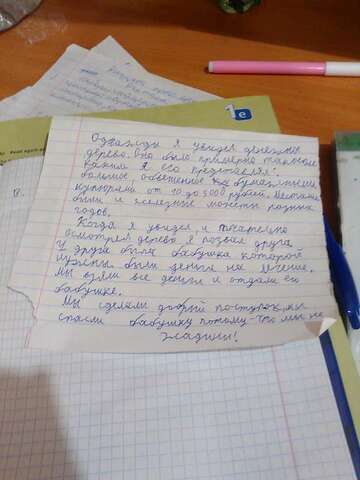 1е
Однажды я увидел денежное
дерево. Оно было примерно таким
каким я его представлял:
большое, обвешенное бумажными
купюрами от 10 до 5000 рублей. Местами
были и железные монеты разных
годов.
Когда я увидел, и тщательно
осмотрел дерево я позвал друга.
У друга была бабушка которой
нужны были деньги на лечение.
Мы взяли все деньги и отдали его
бабушке.
Мы сделали добрый поступок, мы
спасли бабушку потому-что мы не
жадины!